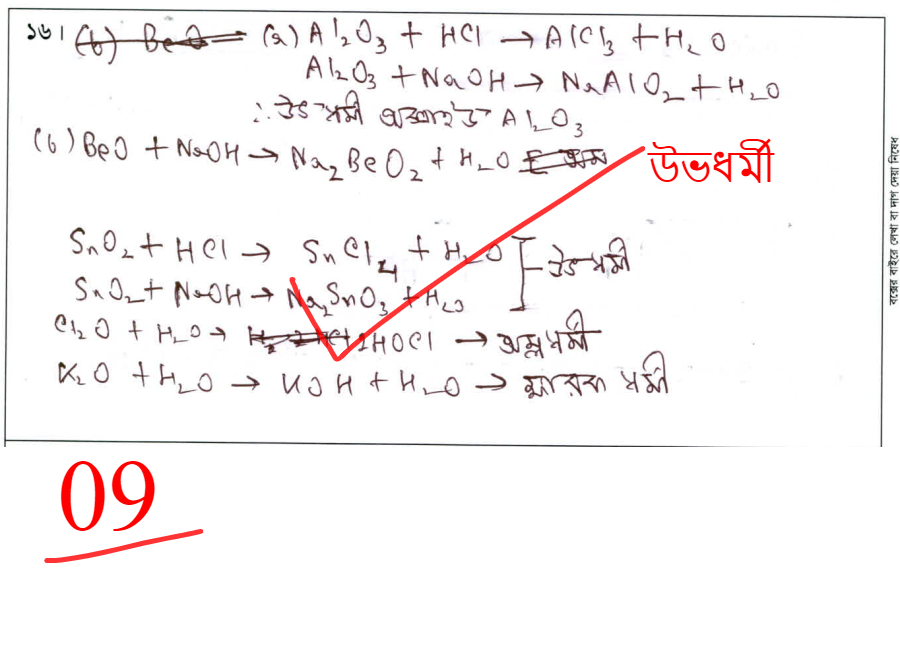 ১৬। (b) BeO (a) Al₂O₃ + HCl → AlCl₃ + H₂O
Al₂O₃ + NaOH → NaAlO₂ + H₂O
∴ উভধর্মী অক্সাইড Al₂O₃
(b) BeO + NaOH → Na₂BeO₂ + H₂O
উভধর্মী
SnO₂ + HCl → SnCl₄ + H₂O
উভধর্মী
SnO₂ + NaOH → Na₂SnO₃ + H₂O
Cl₂O + H₂O → 2HOCl → অম্লধর্মী
K₂O + H₂O → KOH + H₂O → ক্ষারকধর্মী
09
বক্সের বাইরে লেখা বা দাগ দেয়া নিষেধ